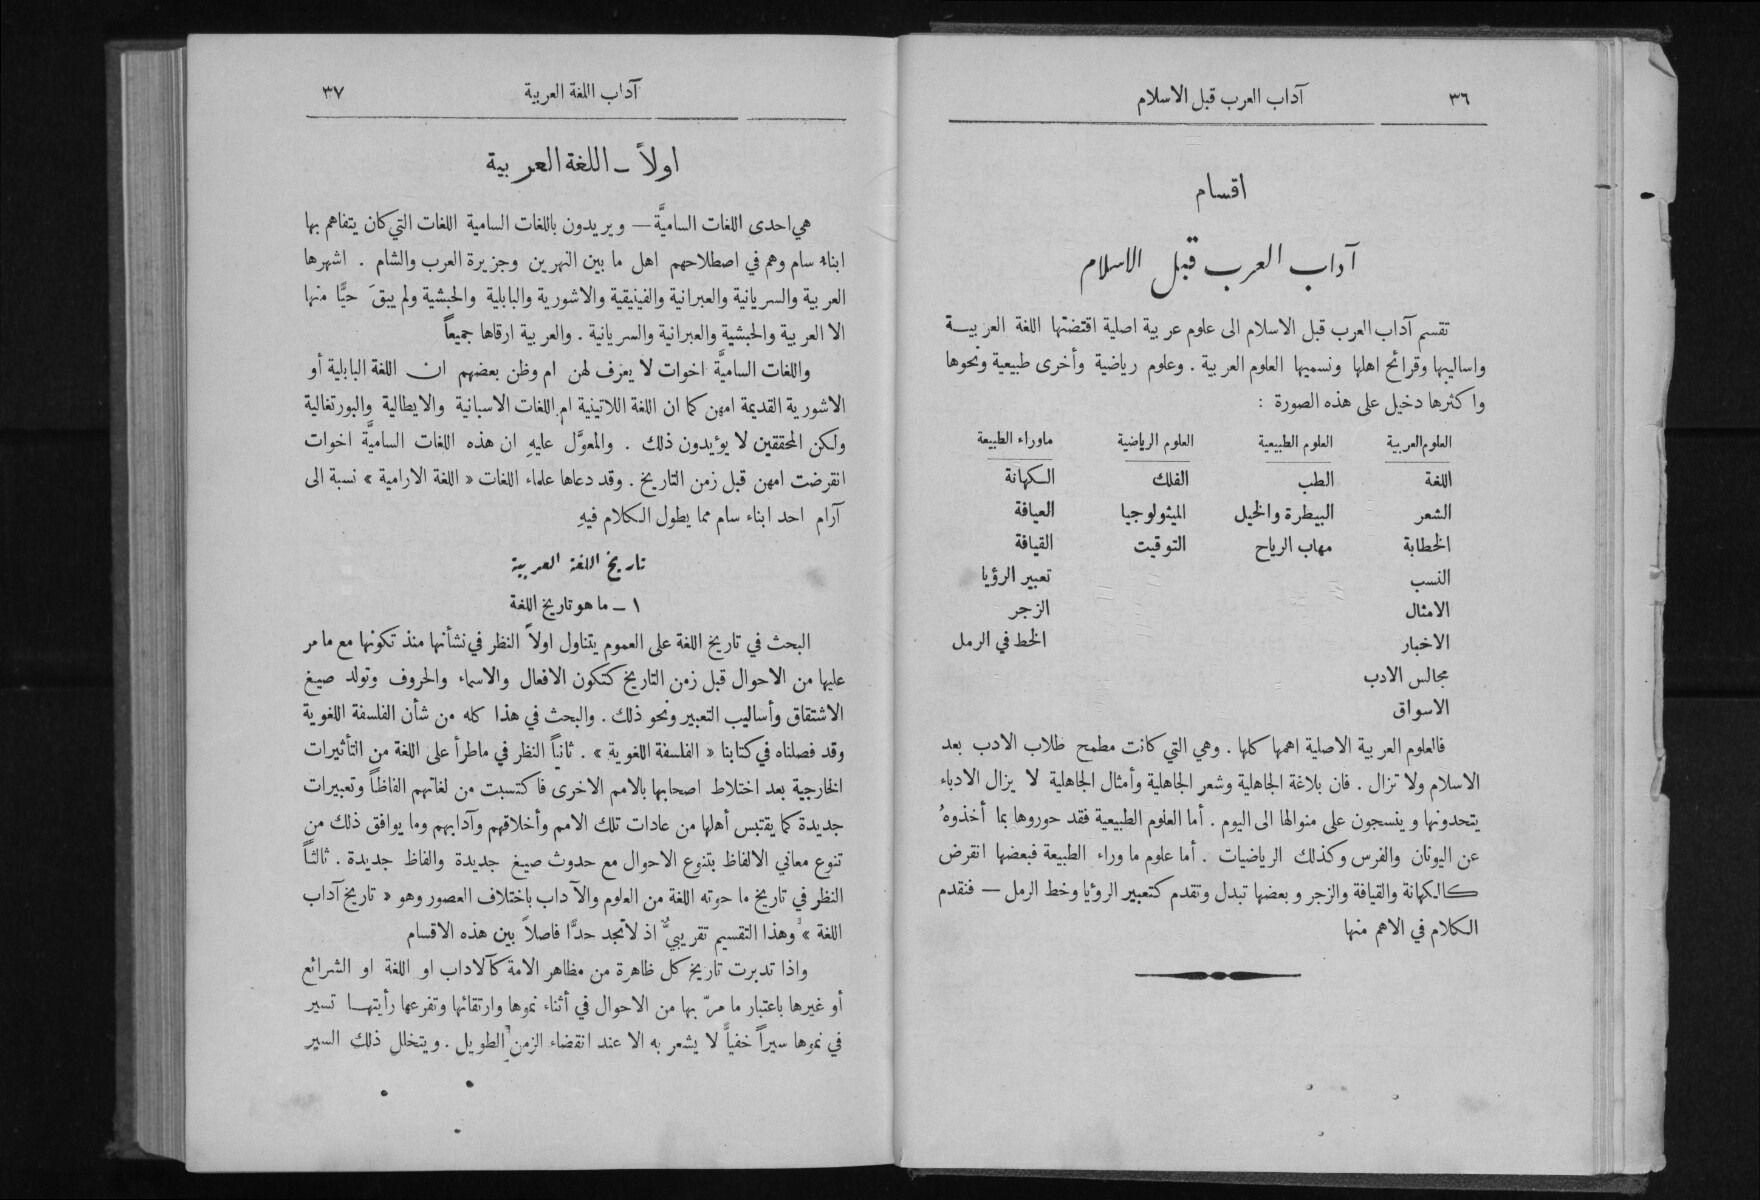 ٣٦
آداب العرب قبل الاسلام
اقسام
آداب العرب قبل الاسلام
تقسم آداب العرب قبل الاسلام الى علوم عربية اصلية اقتضتها اللغة العربيــة
واساليبها وقرائح اهلها ونسميها العلوم العربية . وعلوم رياضية وأخرى طبيعية ونحوها
واكثرها دخيل على هذه الصورة :
العلوم العربية العلوم الطبيعية العلوم الرياضية ماوراء الطبيعة
اللغة الطب الفلك الكهانة
الشعر البيطرة والخيل الميثولوجيا العيافة
الخطابة مهاب الرياح التوقيت القيافة
النسب تعبير الرؤيا
الامثال الزجر
الاخبار الخط في الرمل
مجالس الادب
الاسواق
فالعلوم العربية الاصلية اهمها كلها . وهي التي كانت مطمح طلاب الادب بعد
الاسلام ولا تزال . فان بلاغة الجاهلية وشعر الجاهلية وأمثال الجاهلية لا يزال الادباء
يتحدونها وينسجون على منوالها الى اليوم . أما العلوم الطبيعية فقد حوروها بما أخذوهُ
عن اليونان والفرس وكذلك الرياضيات . أما علوم ما وراء الطبيعة فبعضها انقرض
كالكهانة والقيافة والزجر وبعضها تبدل وتقدم كتعبير الرؤيا وخط الرمل — فنقدم
الكلام في الاهم منها
آداب اللغة العربية
٣٧
اولاً – اللغة العربية
هي احدى اللغات الساميَّة — ويريدون باللغات السامية اللغات التي كان يتفاهم بها
ابناء سام وهم في اصطلاحهم اهل ما بين النهرين وجزيرة العرب والشام . اشهرها
العربية والسريانية والعبرانية والفينيقية والاشورية والبابلية والحبشية ولم يبقَ حيًّا منها
الا العربية والحبشية والعبرانية والسريانية . والعربية ارقاها جميعاً
واللغات الساميَّة اخوات لا يعرف لهن ام وظن بعضهم ان اللغة البابلية أو
الاشورية القديمة امهن كما ان اللغة اللاتينية ام اللغات الاسبانية والايطالية والبورتغالية
ولكن المحققين لا يؤيدون ذلك . والمعوَّل عليهِ ان هذه اللغات الساميَّة اخوات
انقرضت امهن قبل زمن التاريخ . وقد دعاها علماء اللغات « اللغة الارامية » نسبة الى
آرام احد ابناء سام مما يطول الكلام فيهِ
تاريخ اللغة العربية
١ – ما هو تاريخ اللغة
البحث في تاريخ اللغة على العموم يتناول اولاً النظر في نشأتها منذ تكونها مع ما مر
عليها من الاحوال قبل زمن التاريخ كتكون الافعال والاسماء والحروف وتولد صيغ
الاشتقاق وأساليب التعبير ونحو ذلك . والبحث في هذا كله من شأن الفلسفة اللغوية
وقد فصلناه في كتابنا « الفلسفة اللغوية » . ثانياً النظر في ما طرأ على اللغة من التأثيرات
الخارجية بعد اختلاط اصحابها بالامم الاخرى فاكتسبت من لغاتهم الفاظاً وتعبيرات
جديدة كما يقتبس أهلها من عادات تلك الامم وأخلاقهم وآدابهم وما يوافق ذلك من
تنوع معاني الالفاظ بتنوع الاحوال مع حدوث صيغ جديدة والفاظ جديدة . ثالثاً
النظر في تاريخ ما حوته اللغة من العلوم والآداب باختلاف العصور وهو « تاريخ آداب
اللغة » وهذا التقسيم تقريبيٌّ اذ لا تجد حدًّا فاصلاً بين هذه الاقسام
واذا تدبرت تاريخ كل ظاهرة من مظاهر الامة كالآداب او اللغة او الشرائع
أو غيرها باعتبار ما مرّ بها من الاحوال في أثناء نموها وارتقائها وتفرعها رأيتهــا تسير
في نموها سيراً خفياً لا يشعر به الا عند انقضاء الزمن الطويل . ويتخلل ذلك السير